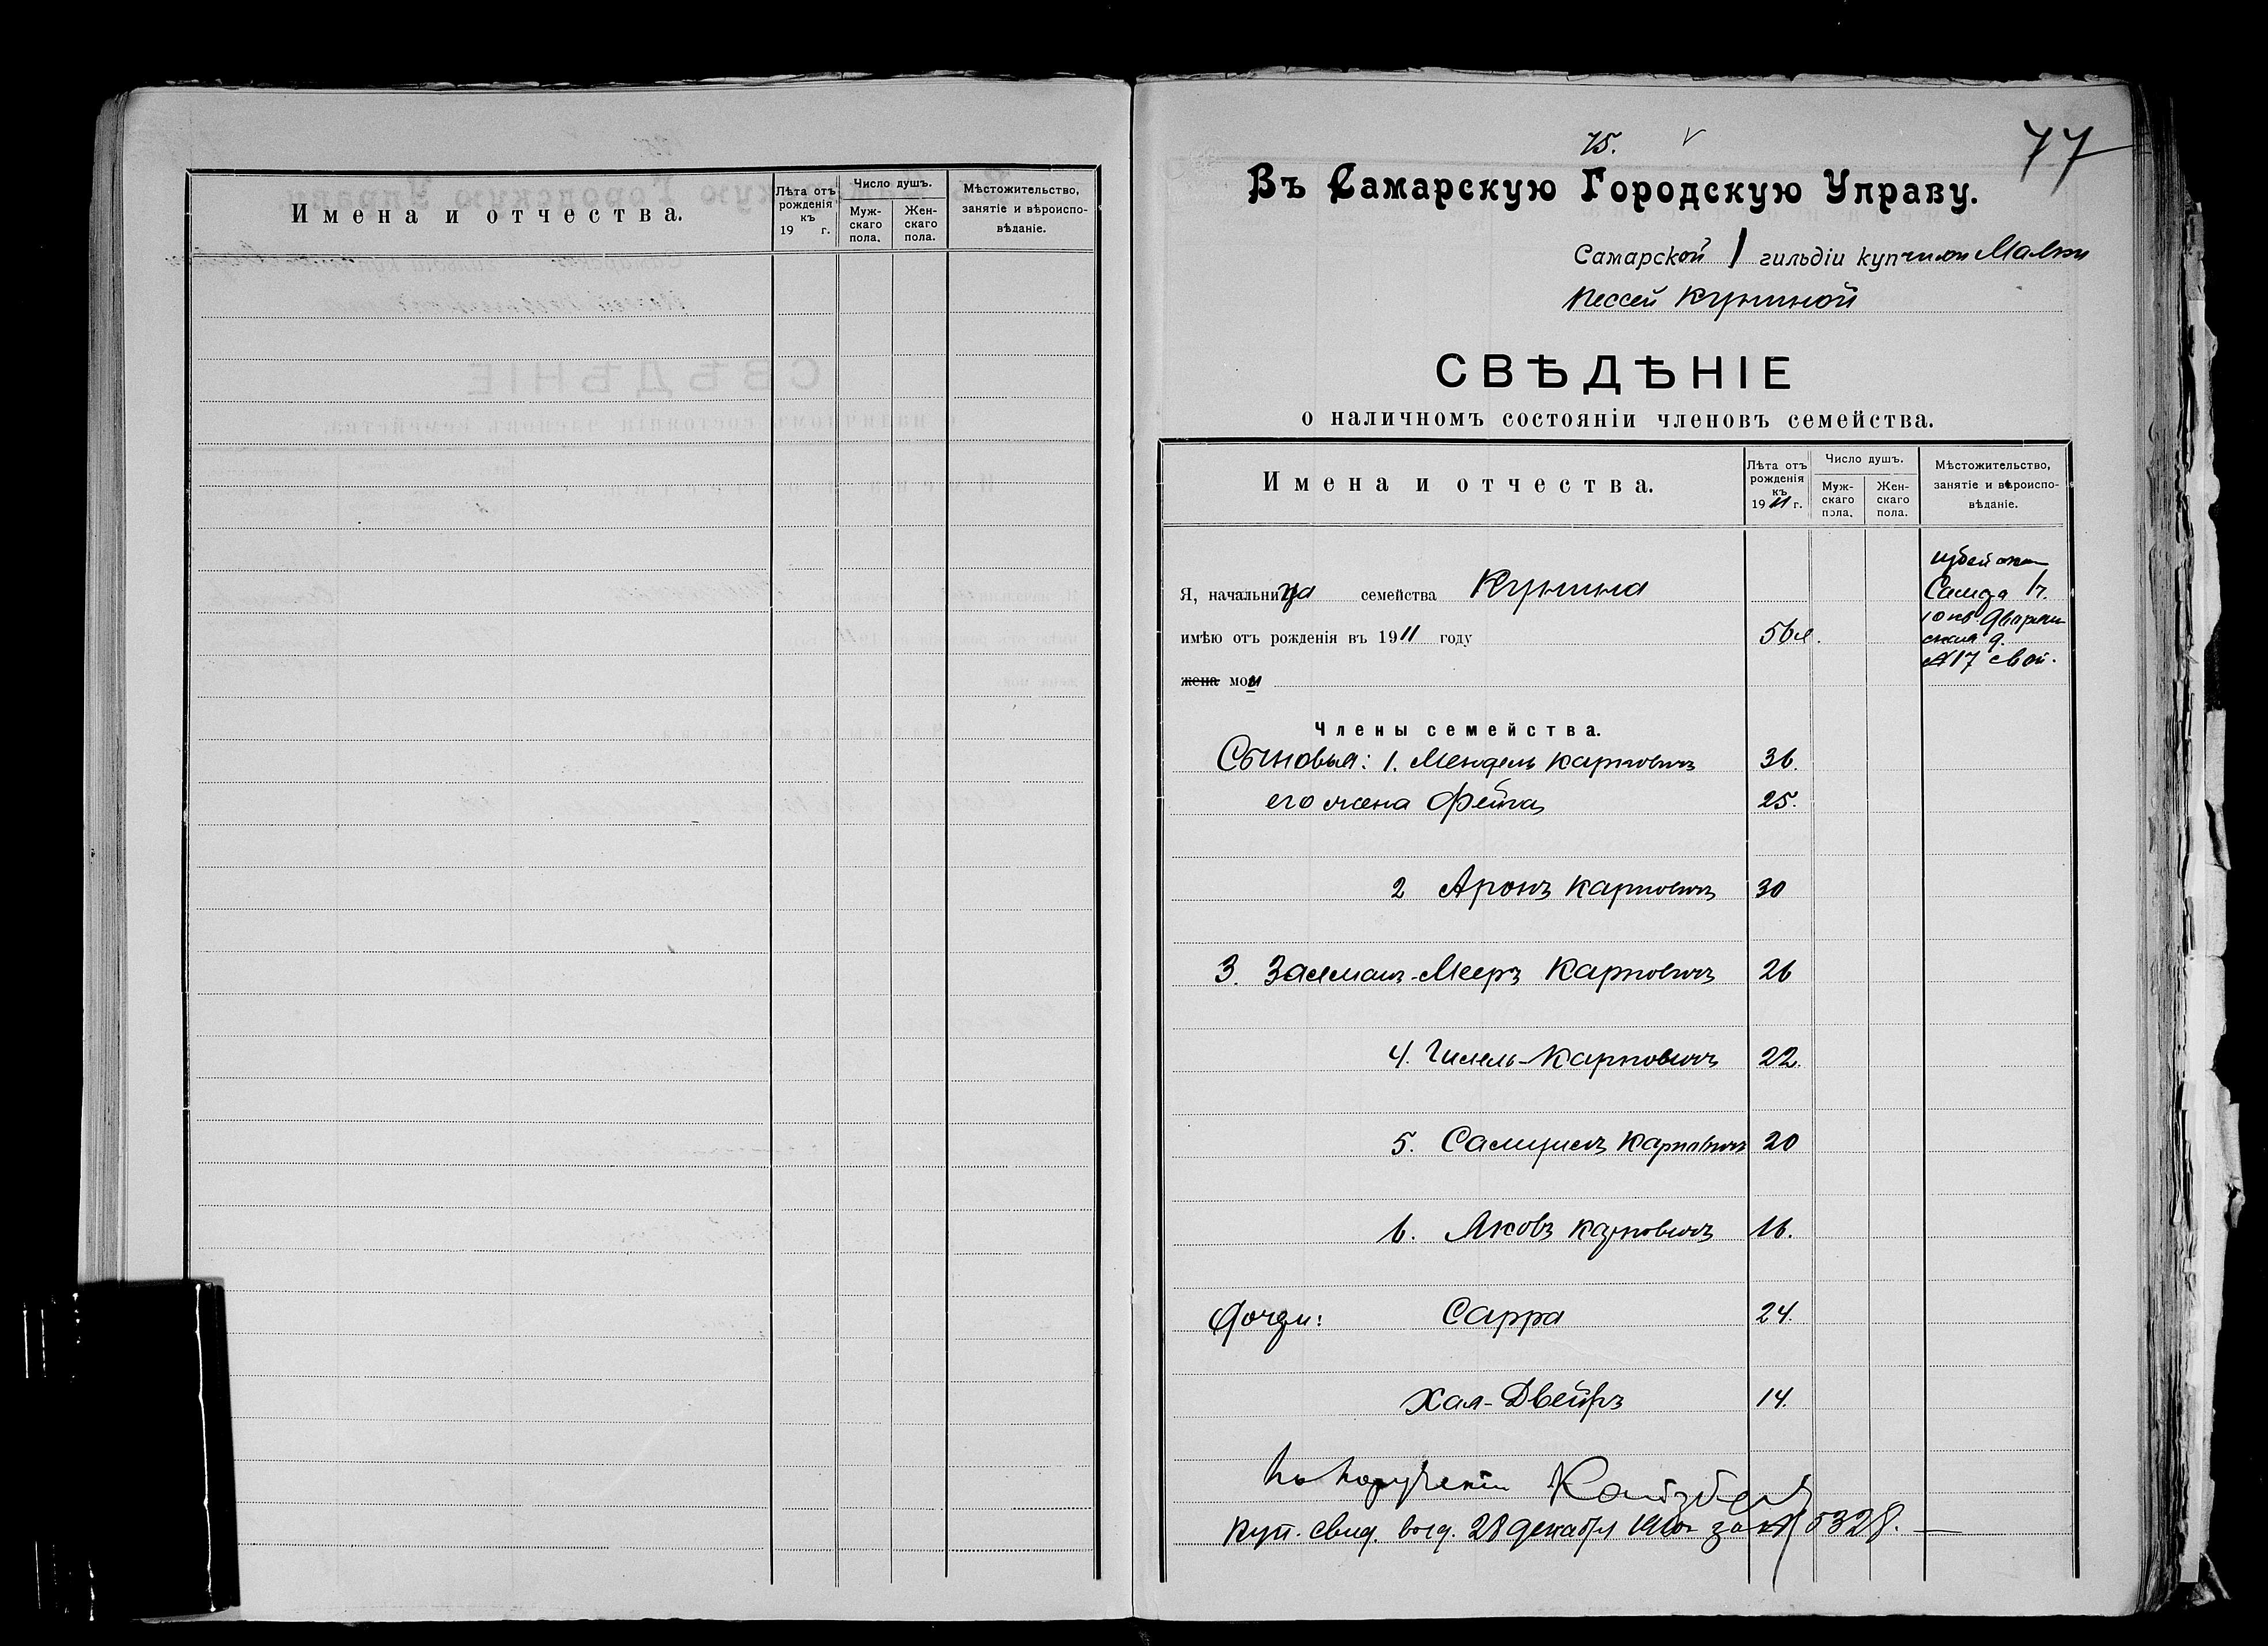 Имена и отчества.
Лѣта отъ рожденія къ 19 г.
Число душъ.
Мужскаго пола.
Женскаго пола.
Мѣстожительство, занятіе и вѣроисповѣданіе.
75.
77
Въ Самарскую Городскую Управу.
Самарской 1 гильдіи купчихи Малки
Пессей Куниной
СВѢДѢНІЕ
о наличномъ состояніи членовъ семейства.
Имена и отчества.
Лѣта отъ рожденія къ 1911 г.
Число душъ.
Мужскаго пола.
Женскаго пола.
Мѣстожительство, занятіе и вѣроисповѣданіе.
Я, начальница семейства Кунина
имѣю отъ рожденія въ 1911 году 56 л.
жена мои
Самара 1 ч.
10 кв Дворян
ская д.
№17 свой.
Члены семейства.
Сыновья: 1. Мендель Карповичъ 36.
его жена Фейга 25.
2 Аронъ Карповичъ 30
3. Залманъ-Мееръ Карповичъ 26
4. Гилель-Карповичъ 22.
5. Самуилъ Карповичъ 20
6. Яковъ Карповичъ 16.
Дочери: Сарра 24.
Хая-Двейръ 14.
По порученію
Куп. свид. выд. 28 декабря 1910г за № 5328.